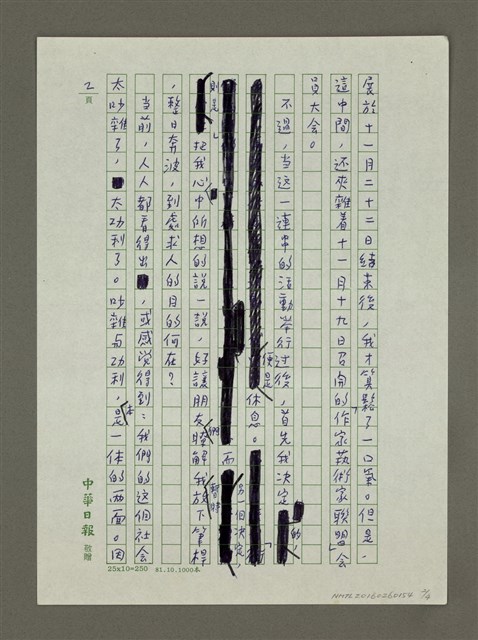 展於十一月二十二日結束後，我才算鬆了一口氣。但是，
這中間，还夾雜着十一月十九日召開的「作家藝術家聯盟」会
員大会。
不過，当这一連串的活動举行过後，首先我决定的
便是休息。而
另一個决定，
則是把我心中所想的說一說，好讓朋友們瞭解我暫時放下筆桿
，整日奔波，到處求人的目的何在？
当前，人人都看得出，或感觉得到：我們的这個社会
太吵雜了，太功利了。吵雜与功利，本是一体的兩面。因
2頁
中華日報 敬贈
25x10=250 81.10.1000本
NMTL20160260154 2/4